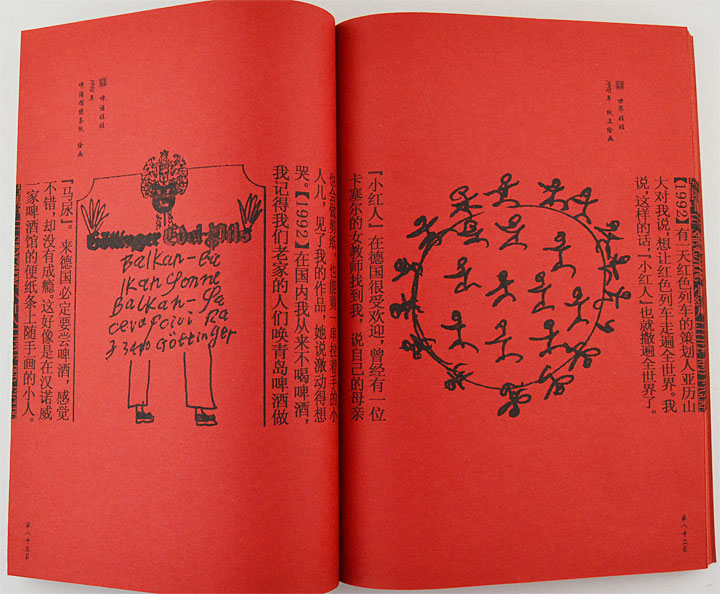 世界娃娃
纸上绘画
【1992】有一天红色列车的策划人亚历山
大对我说，想让红色列车走遍全世界。我
说，这样的话，『小红人』也就撒遍全世界了。
『小红人』在德国很受欢迎，曾经有一位
卡塞尔的女教师找到我，说自己的母亲
第八十二页
也会做剪纸，也能剪一串拉着手的小
人儿，见了我的作品，她说激动得想
哭。【1992】在国内我从来不喝啤酒，
我记得我们老家的人们唤青岛啤酒做
啤酒娃娃
啤酒馆便条纸 绘画
Göttinger Edel-Pils
Balkan-
Balkan-
Göttinger
『马尿』。来德国必定要尝啤酒，感觉
不错，却没有成瘾。这好像是在汉诺威
一家啤酒馆的便纸条上随手画的小人。
第八十三页